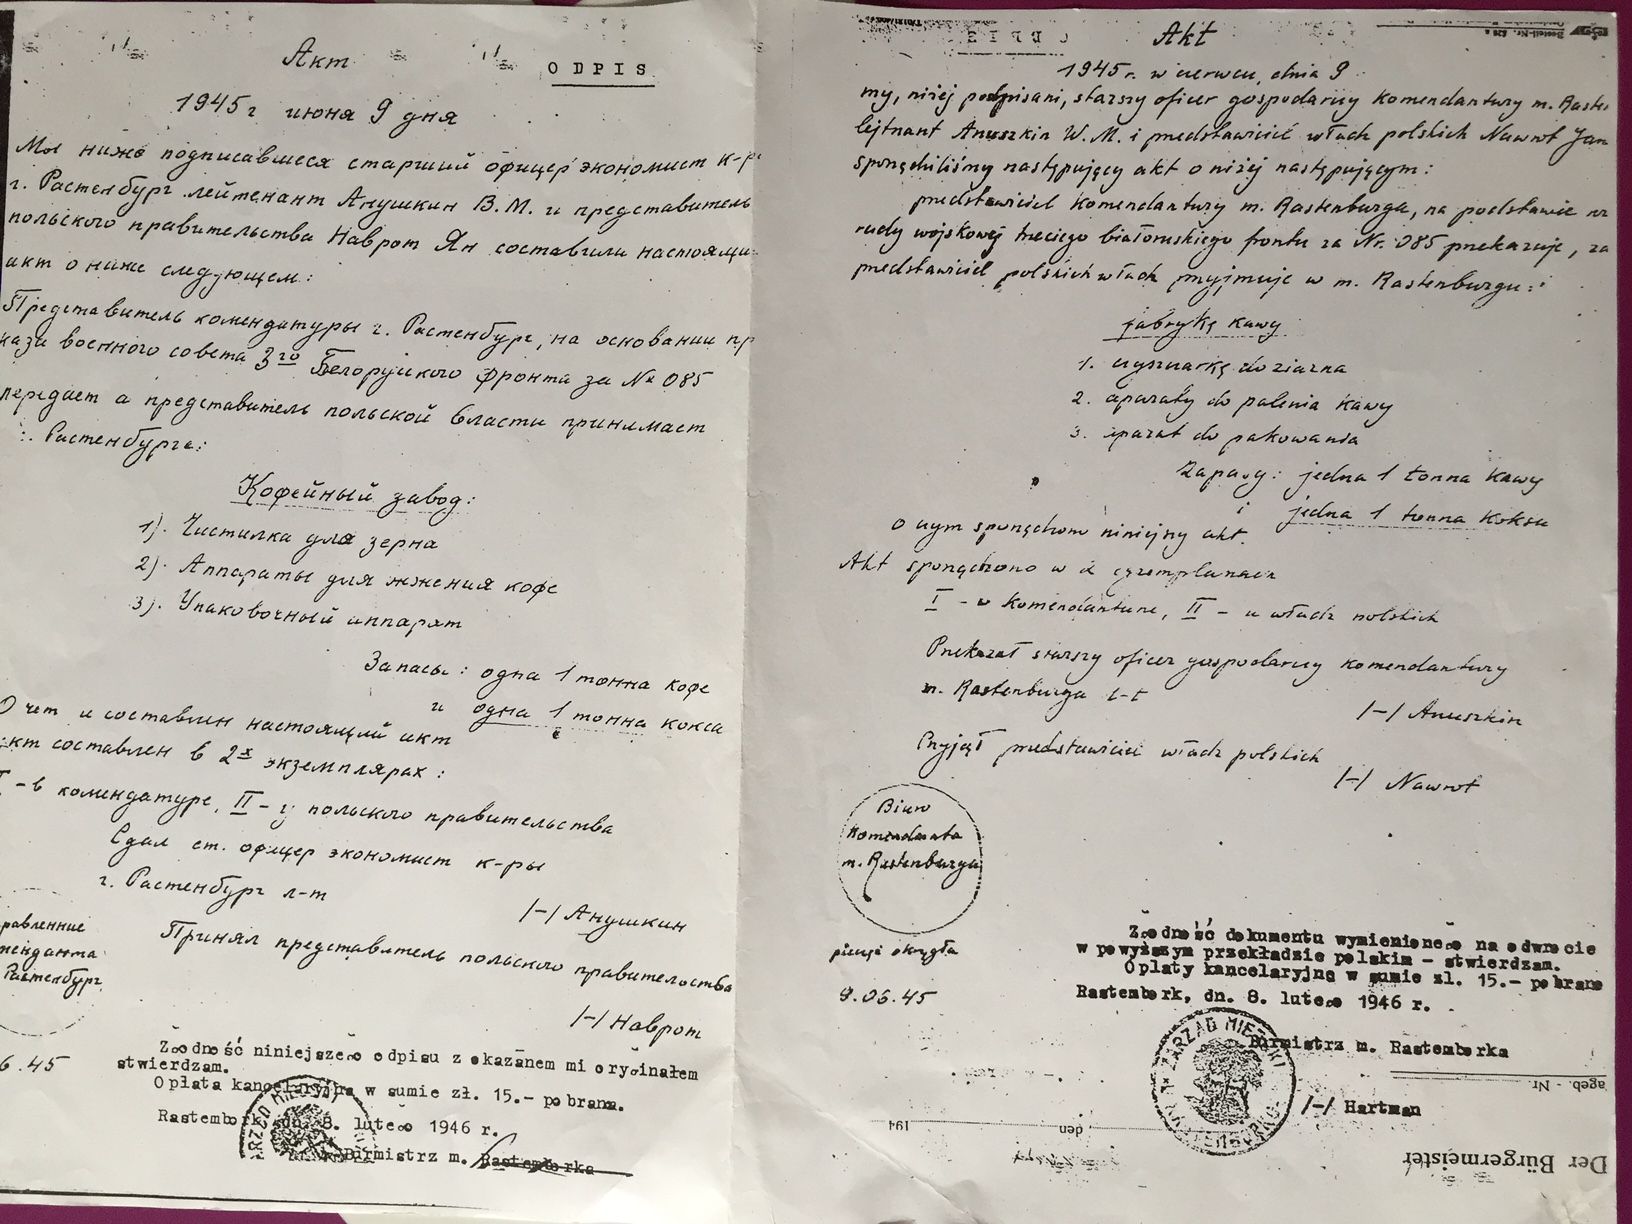 Акт
ODPIS
1945 г июня 9 дня
Мы ниже подписавшиеся старший офицер экономист к-р
г. Растенбург лейтенант Анушкин В.М. и представитель
польского правительства Наврот Ян составили настоящи
акт о ниже следующем:
Представитель комендатуры г. Растенбург, на основании пр
каза военного совета 3го Белоруского фронта за № 085
передает а представитель польской власти принимает
Растенбурге:
Кофейный завод:
1). Чистилка для зерна
2). Аппараты для жжения кофе
3). Упаковочный аппарат
Запасы: одна 1 тонна кофе
и одна 1 тонна кокса
О чем и составлен настоящий акт
акт составлен в 2х экземплярах:
I - в комендатуре, II - у польского правительства
Сдал ст. офицер экономист к-ры
г. Растенбург л-т
/-/ Анушкин
Принял представитель польского правительства
/-/ Наврот
равление
менданта
Растенбург
6.45
Zgodność niniejszego odpisu z okazanem mi oryginałem
stwierdzam.
Opłata kancelaryjna w sumie zł. 15.- pobrana.
Rastembork, dn. 8. lutego 1946 r.
Burmistrz m. Rastemborka
Akt
1945 r. w czerwcu, dnia 9
my, niżej podpisani, starszy oficer gospodarczy komendantury m. Raste
lejtnant Anuszkin W.M. i przedstawiciel władz polskich Nawrot Jan
sporządziliśmy następujący akt o niżej następującym:
przedstawiciel komendantury m. Rastenburga, na podstawie
rady wojskowej trzeciego białoruskiego frontu za Nr. 085 przekazuje, za
przedstawiciel polskich władz przyjmuje w m. Rastenburgu:
fabrykę kawy
1. czyszczarkę do ziarna
2. aparaty do palenia kawy
3. aparat do pakowania
Zapasy: jedna 1 tonna kawy
i jedna 1 tonna koksu
o czym sporządzono niniejszy akt.
Akt sporządzono w 2 egzemplarzach
I - w komendanturze, II - u władz polskich
Przekazał starszy oficer gospodarczy komendantury
m. Rastenburga l-t
/-/ Anuszkin
Przyjął przedstawiciel władz polskich
/-/ Nawrot
Biuro
Komendanta
m. Rastenburga
pieczęć okrągła
9.06.45
Zgodność dokumentu wymienionego na odwrocie
w powyższym przekładzie polskim - stwierdzam.
Opłaty kancelaryjną w sumie zł. 15.- pobrano
Rastembork, dn. 8. lutego 1946 r.
ZARZĄD MIEJSKI
Burmistrz m. Rastemborka
ageb.-Nr.
/-/ Hartman
den 194
Der Bürgermeister